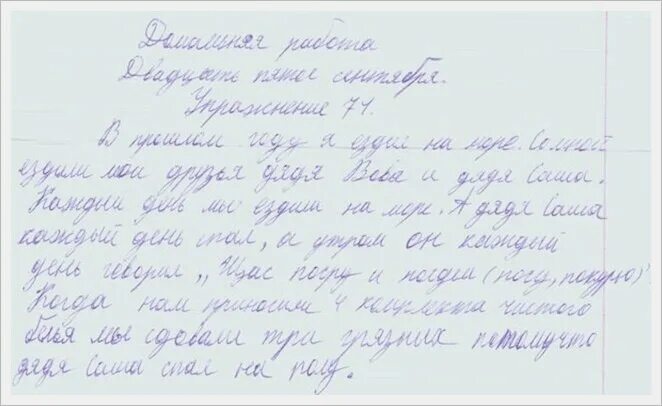 Домашняя работа
Двадцать пятое сентября.
Упражнение 71.
В прошлом году я ездил на море. Со мной
ездили мои друзья дядя Вова и дядя Саша.
Каждый день мы ездили на море. А дядя Саша
каждый день спал, а утром он каждый
день говорил „Щас посру и поедем (посу, покурю)"
Когда нам приносили 4 комплекта чистого
белья мы сдовали три грязных потомучто
дядя Саша спал на полу.